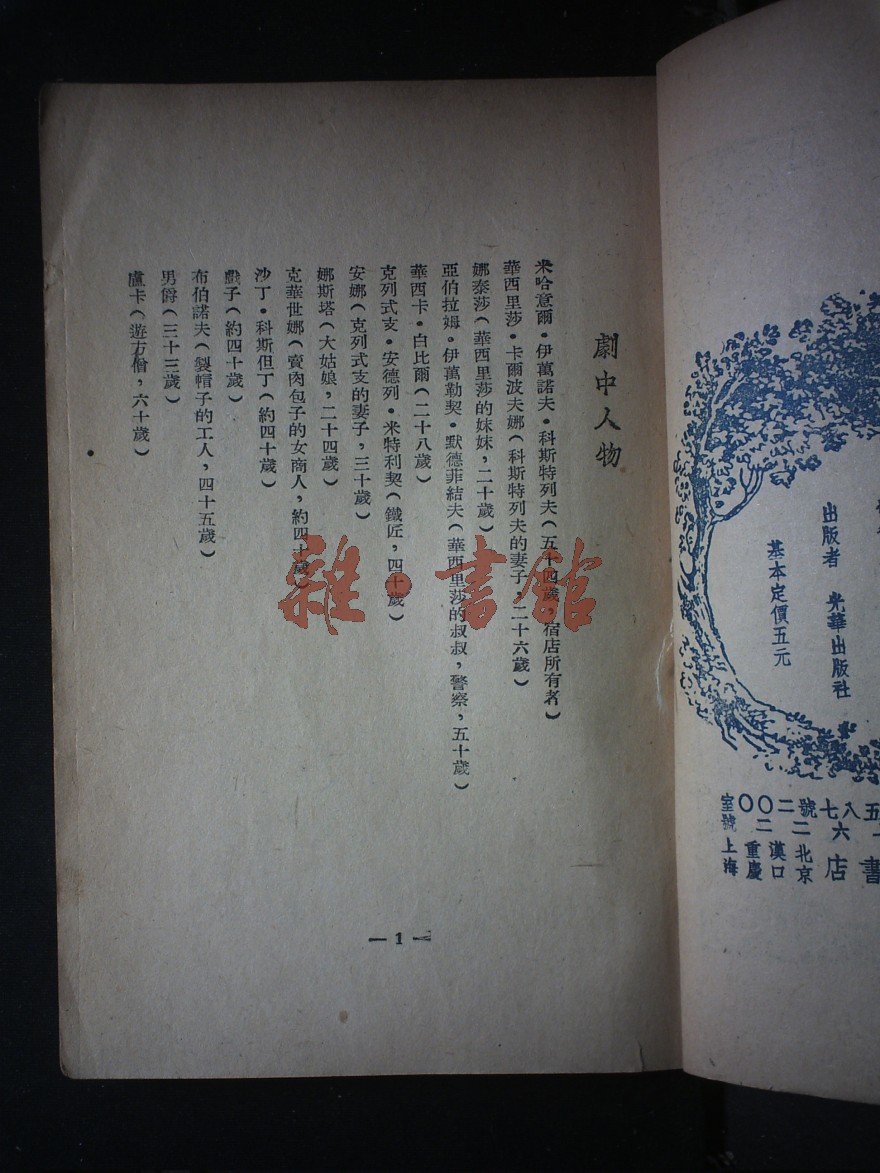 劇中人物
米哈意爾·伊萬諾夫·科斯特列夫(五十四歲,宿店所有者)
華西里莎·卡爾波夫娜(科斯特列夫的妻子,二十六歲)
娜泰莎(華西里莎的妹妹,二十歲)
亞伯拉姆·伊萬勒契·默德菲結夫(華西里莎的叔叔,警察,五十歲)
華西卡·白比爾(二十八歲)
克列式支·安德列·米特利契(鐵匠,四十歲)
安娜(克列式支的妻子,三十歲)
娜斯塔(大姑娘,二十四歲)
克華世娜(賣肉包子的女商人,約四十歲)
沙丁·科斯但丁(約四十歲)
戲子(約四十歲)
布伯諾夫(製帽子的工人,四十五歲)
男爵(三十三歲)
盧卡(遊方僧,六十歲)
— 1 —
雜·書館
出版者 光華出版社
基本定價五元
五八七號二〇〇室
六二二號
書店
北京
漢口
重慶
上海